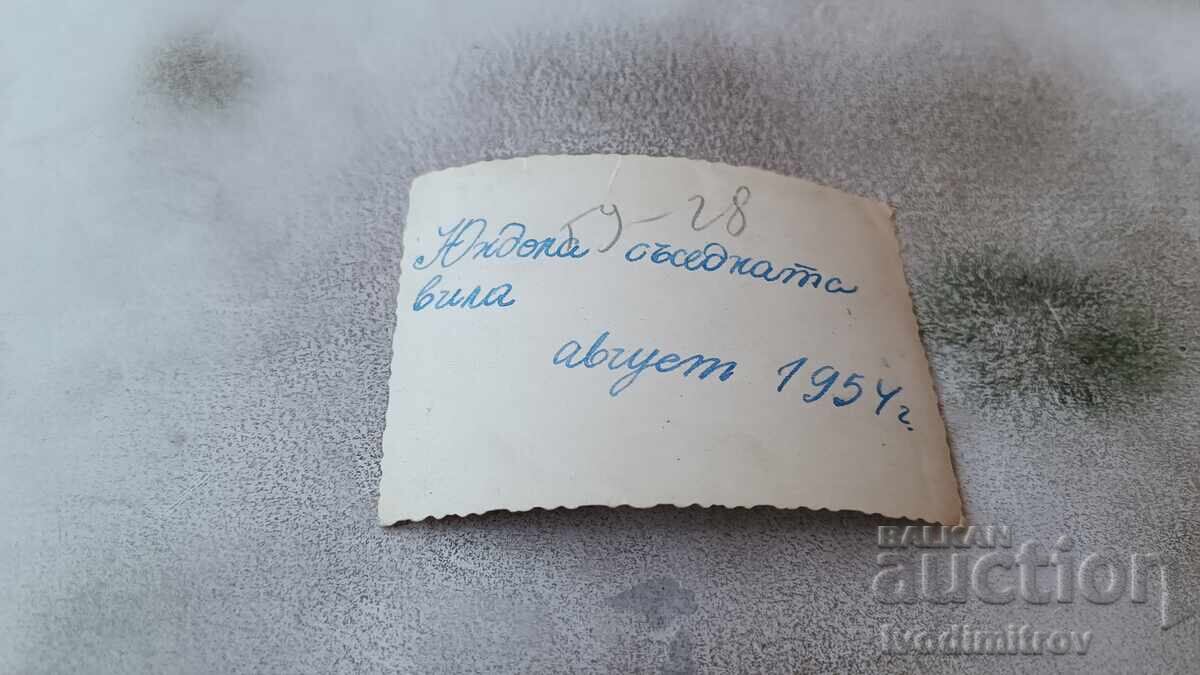 59-28
Юндола съседната
вила
август 1954 г.
BALKAN
auction
ivodimitrov